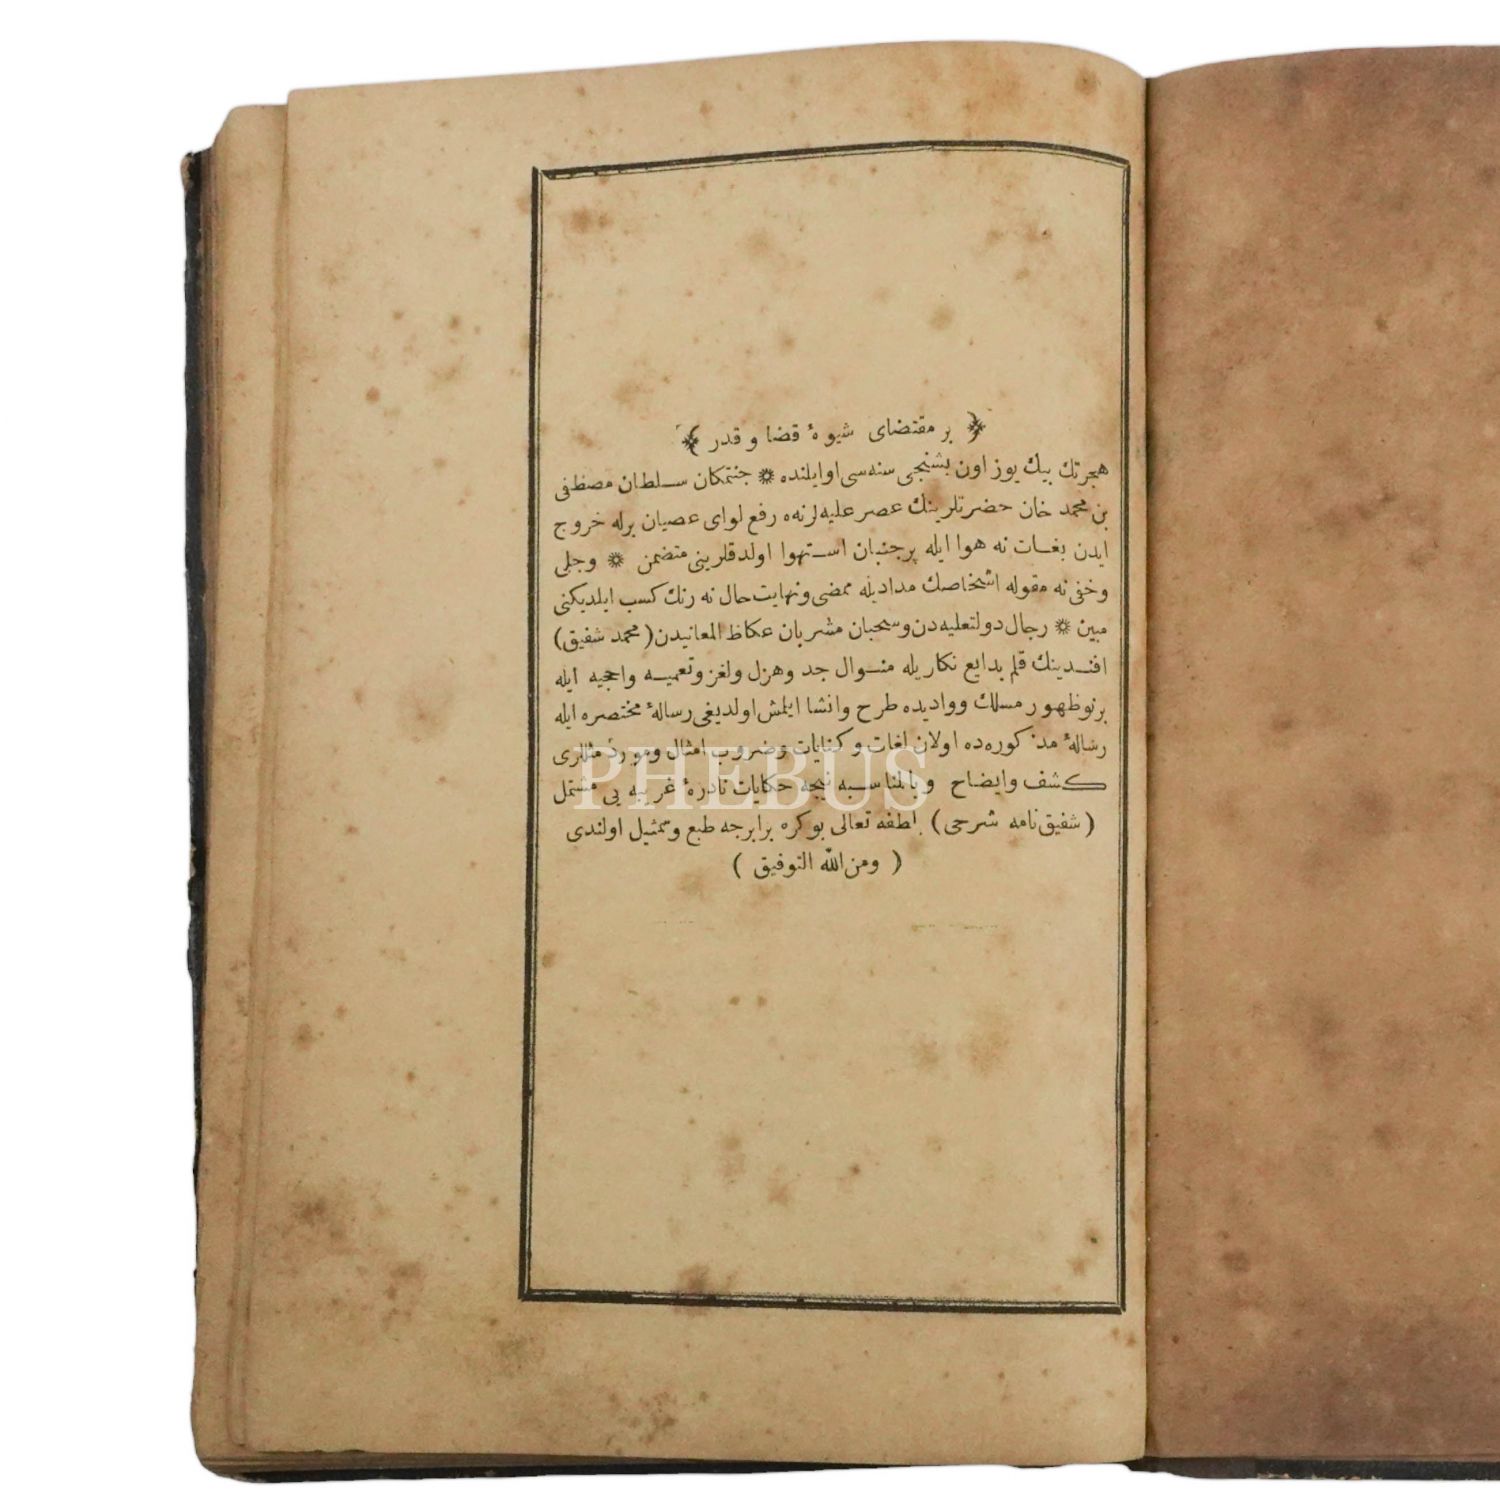 ﴿ بر مقتضای شیوهٔ قضا و قدر ﴾
هجرتك بیك یوز اون بشنجی سنه سی اوایلنده ۞ جنتمکان سلطان مصطفی
بن محمد خان حضرتلرینك عصر علیه لرنده رفع لوای عصیان برله خروج
ایدن بغات نه هوا ایله پرجنبان استهوا اولدقلرینی متضمن ۞ وجلی
وخفی نه مقوله اشخاصك مدادیله ممضی ونهایت حال نه رنك کسب ایلدیکنی
مبین ۞ رجال دولتعلیه دن وسحبان مشربان عکاظ المعانیدن (محمد شفیق)
افندینك قلم بدایع نکاریله منوال جد وهزل ولغز وتعمیه واحجیه ایله
برنوظهور مسلك ووادیده طرح وانشا ایلمش اولدیغی رسالهٔ مختصره ایله
رسالهٔ مذکوره ده اولان لغات وکنایات وضروب امثال ومورد مثللری
کشف وایضاح وبالمناسبه نیجه حکایات نادرهٔ غریبه یی مشتمل
(شفیق نامه شرحی) لطفه تعالی بوکره برابرجه طبع وتمثیل اولندی
( ومن الله التوفیق )
PHEBUS